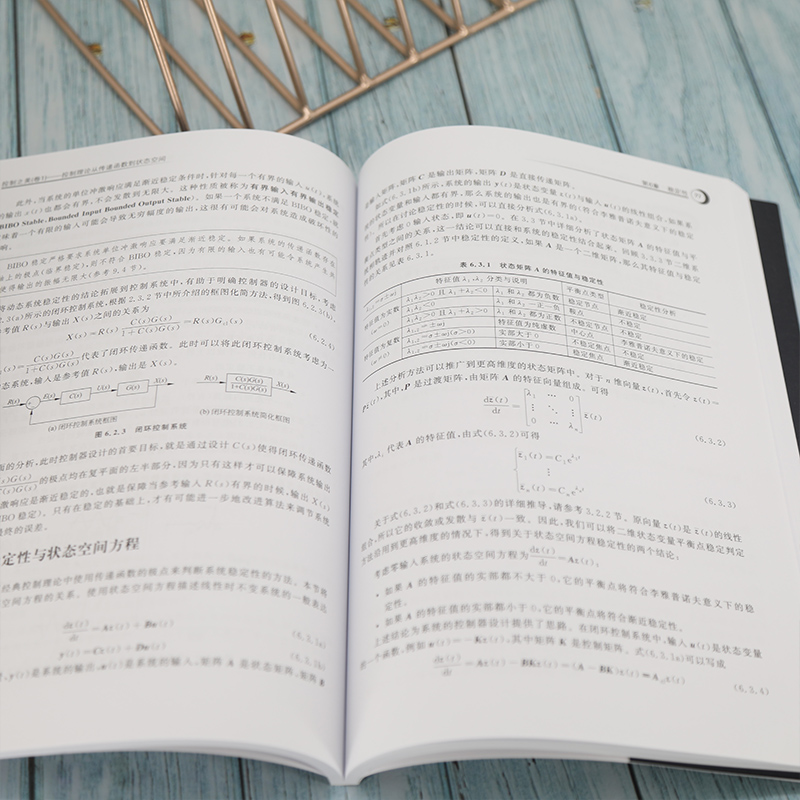 控制之美(卷1)——控制理论从传递函数到状态空间
此外,当系统的单位冲激响应满足渐近稳定条件时,针对每一个有界的输入u(t),系统
的输出x(t)也都会有界,不会发散到无限大。这种性质被称为有界输入有界输出稳定
(BIBO Stable, Bounded Input Bounded Output Stable)。如果一个系统不满足BIBO稳定,意
味着一个有限的输入可能会导致无穷幅度的输出,这很有可能会对系统造成破坏性的
影响。
BIBO稳定严格要求系统单位冲激响应要满足渐近稳定。如果系统的传递函数存在
轴上的极点(临界稳定),则不符合BIBO稳定,因为有限的输入也有可能令系统产生共
使得输出的振幅无限大(参考9.4节)。
将动态系统稳定性的结论拓展到控制系统中,有助于明确控制器的设计目标。考虑
2.3(a)所示的闭环控制系统,根据2.3.2节中所介绍的框图化简方法,得到图6.2.3(b),
参考值R(s)与输出X(s)之间的关系为
X(s)=R(s) C(s)G(s)/1+C(s)G(s) =R(s)G_cl(s) (6.2.4)
(s)= C(s)G(s)/1+C(s)G(s) 代表了闭环传递函数。此时可以将此闭环控制系统考虑为一
动态系统,输入是参考值R(s),输出是X(s)。
R(s) E(s) C(s) U(s) G(s) X(s)
R(s) C(s)G(s)/1+C(s)G(s) X(s)
(a) 闭环控制系统框图 (b) 闭环控制系统简化框图
图6.2.3 闭环控制系统
面的分析,此时控制器设计的首要目标,就是通过设计C(s)使得闭环传递函数
C(s)G(s) 的极点均在复平面的左半部分,因为只有这样才可以保障系统输出
激响应是渐近稳定的,也就是保障当参考输入R(s)有界的时候,输出X(s)
BIBO稳定)。只有在稳定的基础上,才有可能进一步地改进算法来调节系统
最终的误差。
定性与状态空间方程
经典控制理论中使用传递函数的极点来判断系统稳定性的方法。本节将
空间方程的关系。使用状态空间方程描述线性时不变系统的一般表达
dz(t)/dt = Az(t) + Bu(t) (6.3.1a)
y(t) = Cz(t) + Du(t) (6.3.1b)
y(t)是系统的输出,u(t)是系统的输入,矩阵A是状态矩阵,矩阵B
第6章 稳定性
是输入矩阵,矩阵C是输出矩阵,矩阵D是直接传递矩阵。
如式(6.3.1b)所示,系统的输出y(t)是状态变量z(t)与输入u(t)的线性组合,如果系
统的状态变量和输入都有界,那么系统的输出也是有界的(符合李雅普诺夫意义下的稳定
性)。所以在讨论稳定性的时候,可以直接分析式(6.3.1a)。
首先考虑0输入状态,即u(t)=0。在3.3节中详细分析了状态矩阵A的特征值与平
衡点类型之间的关系,这一结论可以直接和系统的稳定性结合起来。回顾3.3.3节二维系
统相轨迹并对照6.1.2节中稳定性的定义,如果A是一个二维矩阵,那么其特征值与稳定
性的关系见表6.3.1。
表6.3.1 状态矩阵A的特征值与稳定性
特征值λ1、λ2分类与说明 平衡点类型 稳定性分析
特征值为实数 λ1λ2>0且λ1+λ2<0 λ1和λ2都为负数 稳定节点 渐近稳定
λ1λ2<0 λ1和λ2一正一负 鞍点 不稳定
λ1λ2>0且λ1+λ2>0 λ1和λ2都为正数 不稳定节点 不稳定
特征值为复数 λ1,2=±ωj 特征值为纯虚数 中心点 李雅普诺夫意义下的稳定
λ1,2=σ±ωj(σ>0) 实部大于0 不稳定焦点 不稳定
λ1,2=σ±ωj(σ<0) 实部小于0 稳定焦点 渐近稳定
上述分析方法可以推广到更高维度的状态矩阵中。对于n维向量z(t),首先令z(t)=
Pz̄(t),其中,P是过渡矩阵,由矩阵A的特征向量组成。可得
dz̄(t)/dt = [λ1 ⋯ 0 ⋮ ⋱ ⋮ 0 ⋯ λn] z̄(t) (6.3.2)
其中,λi代表A的特征值,由式(6.3.2)可得
z̄1(t)=C1e^λ1t
⋮
z̄n(t)=Cne^λnt (6.3.3)
关于式(6.3.2)和式(6.3.3)的详细推导,请参考3.2.2节。原向量z(t)是z̄(t)的线性
组合,所以它的收敛或发散与z̄(t)一致。因此,我们可以将二维状态变量平衡点稳定判定
方法沿用到更高维度的情况下,得到关于状态空间方程稳定性的两个结论:
考虑零输入系统的状态空间方程为dz(t)/dt=Az(t),
• 如果A的特征值的实部都不大于0,它的平衡点将符合李雅普诺夫意义下的稳
定性。
• 如果A的特征值的实部都小于0,它的平衡点将符合渐近稳定性。
上述结论为系统的控制器设计提供了思路。在闭环控制系统中,输入u(t)是状态变量
的一个函数,例如u(t)=-Kz(t),其中矩阵K是控制矩阵。式(6.3.1a)可以写成
dz(t)/dt = Az(t) - BKz(t) = (A - BK)z(t) = A_cl z(t) (6.3.4)